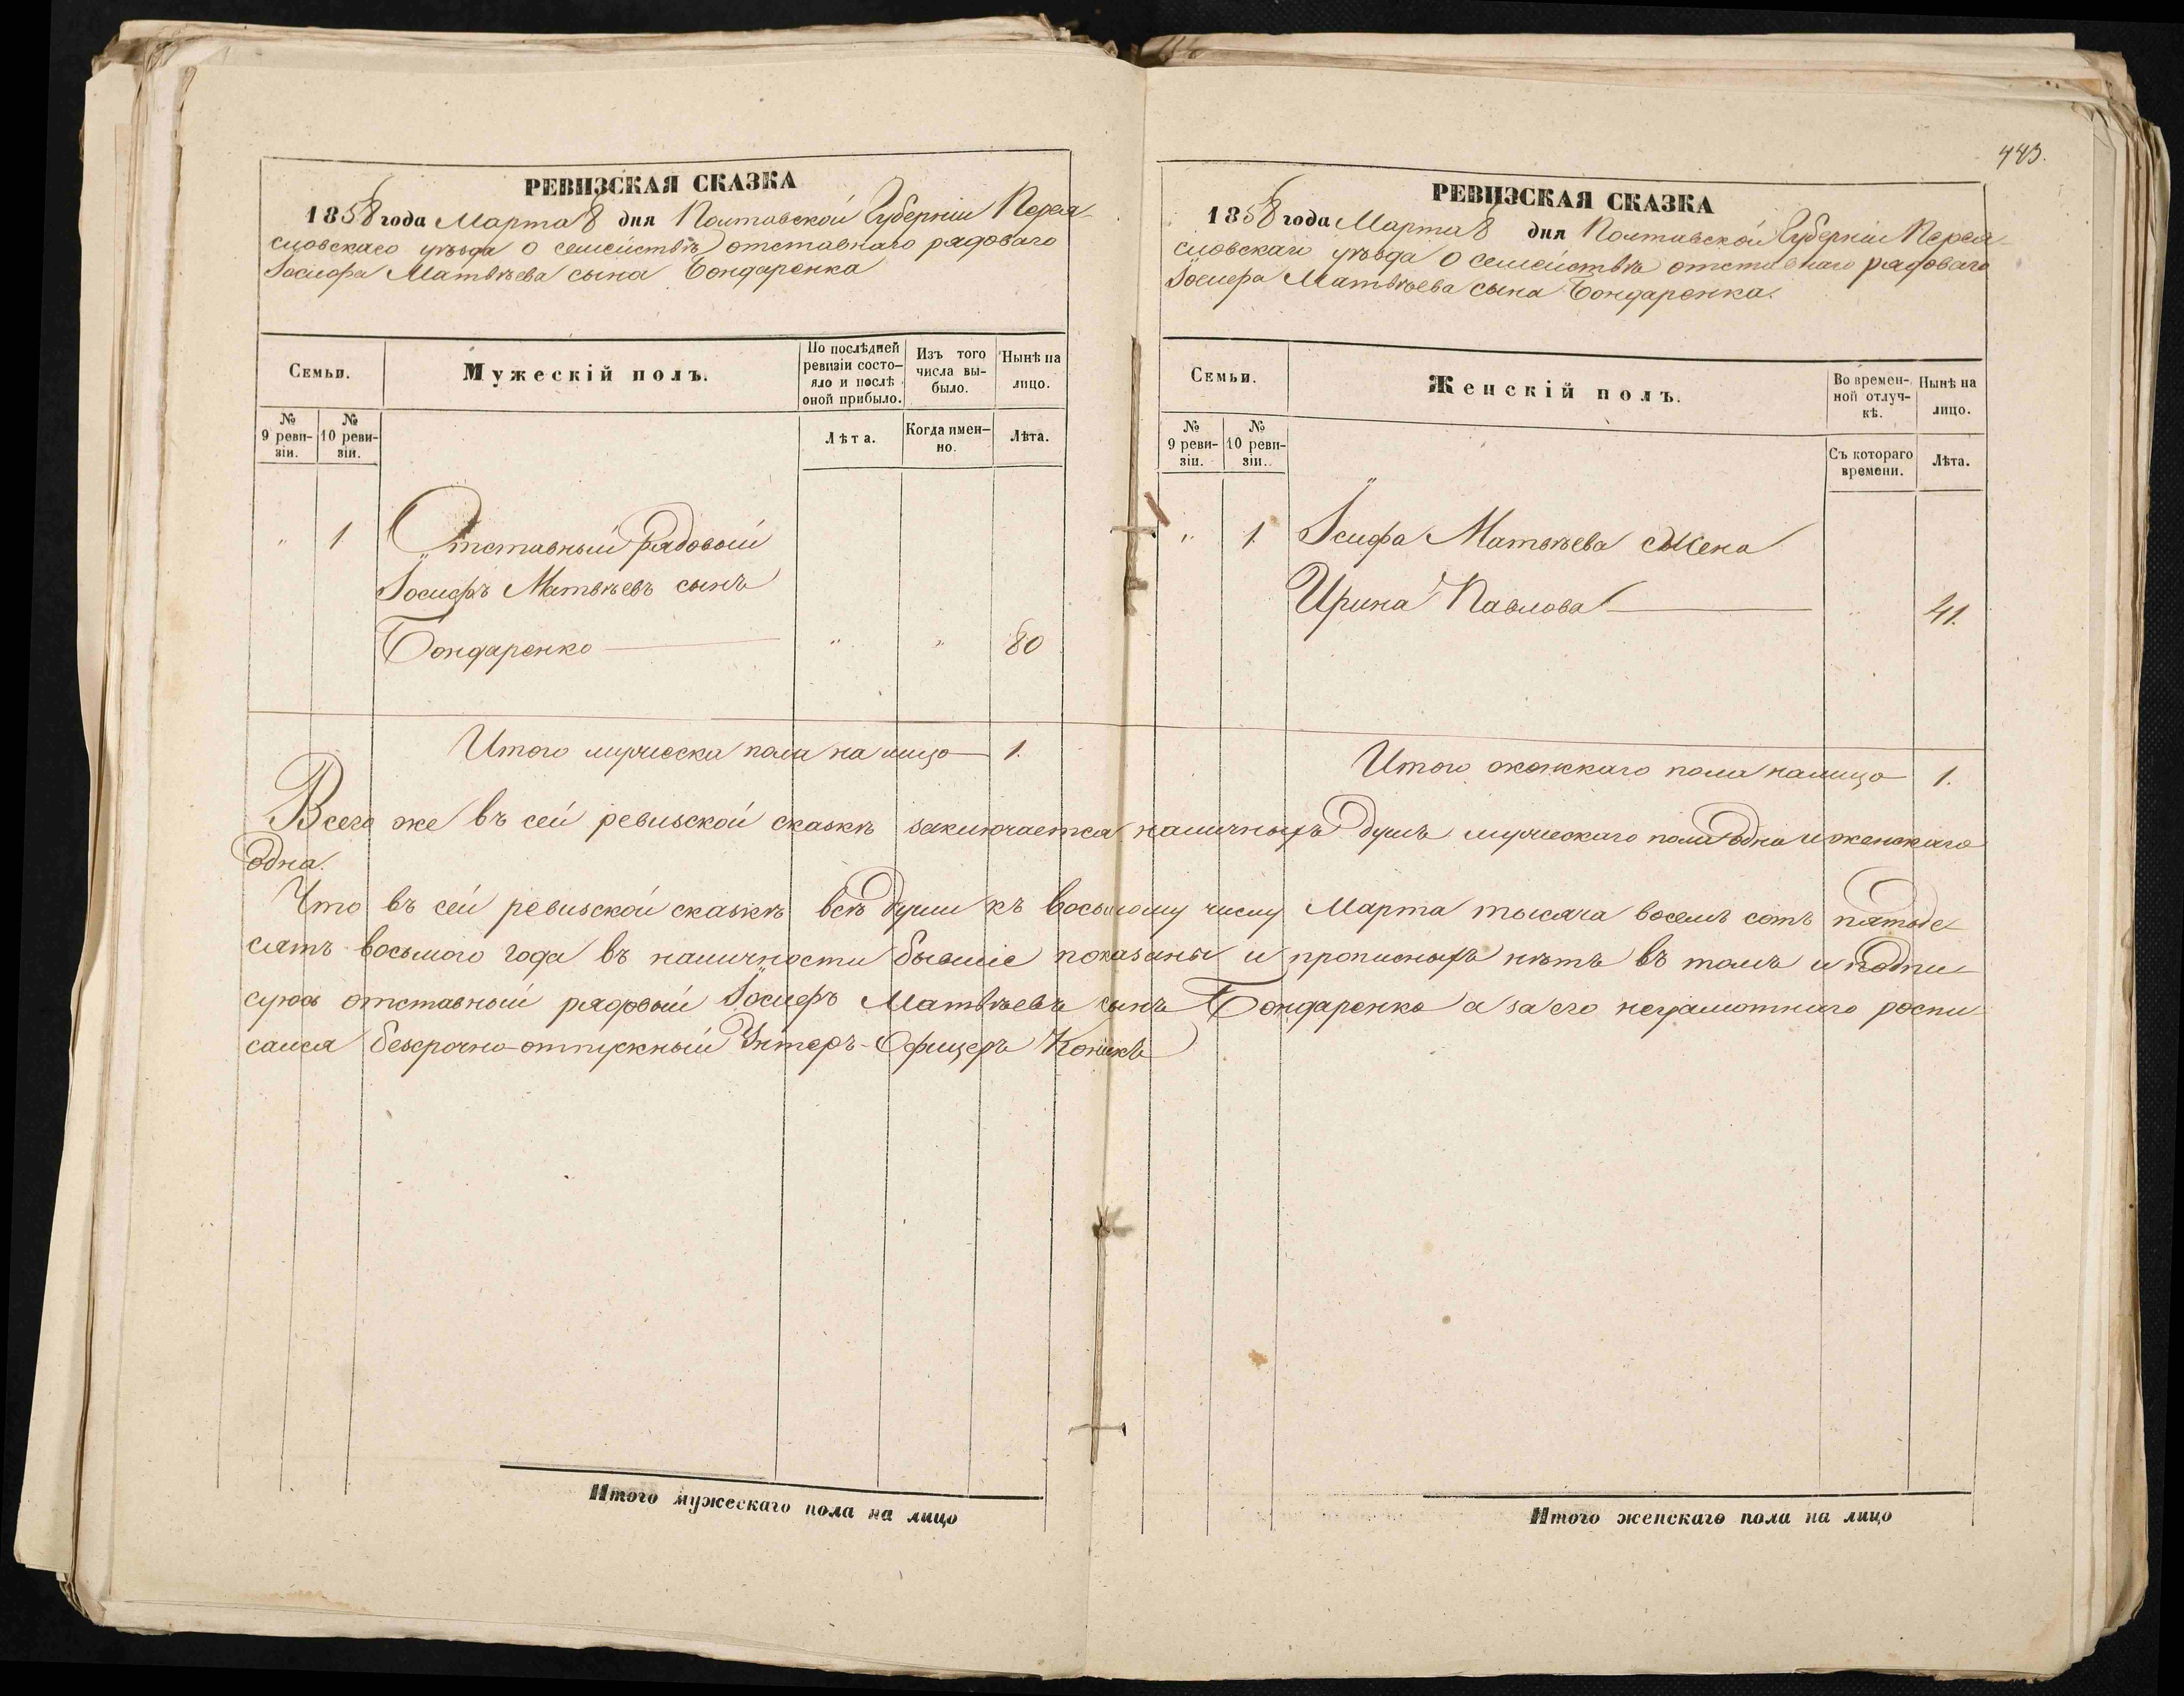 РЕВИЗСКАЯ СКАЗКА
1858 года Марта 8 дня Полтавской Губерніи Перея-
словскаго уѣзда о семействѣ отставнаго рядоваго
Іосифа Матвѣева сына Бондаренка
Семьи.
Мужескій полъ.
По послѣдней
ревизіи состо-
яло и послѣ
оной прибыло.
Изъ того
числа вы-
было.
Нынѣ на
лицо.
№
9 реви-
зіи.
№
10 реви-
зіи.
Лѣта.
Когда имен-
но.
Лѣта.
" 1 Отставный рядовой
Іосифъ Матвѣевъ сынъ
Бондаренко " " 80
Итого мужеска пола на лицо 1.
443.
РЕВИЗСКАЯ СКАЗКА
1858 года Марта 8 дня Полтавской Губерніи Перея-
словскаго уѣзда о семействѣ отставнаго рядоваго
Іосифа Матвѣева сына Бондаренка.
Семьи.
Женскій полъ.
Во времен-
ной отлуч-
кѣ.
Нынѣ на
лицо.
№
9 реви-
зіи.
№
10 реви-
зіи.
Съ котораго
времени.
Лѣта.
" 1. Ісифа Матвѣева жена
Ирина Павлова " 41.
Итого женскаго пола налицо 1.
Всего же въ сей ревизской сказкѣ заключается наличныхъ душъ мужескаго пола одна и женскаго
одна.
Что въ сей ревизской сказкѣ всѣ души къ восьмому числу Марта тысяча восемь сотъ пятьде-
сятъ восьмого года въ наличности бывшіе показаны и прописныхъ нѣтъ въ томъ и подпи-
суюсь отставный рядовый Іосифъ Матвѣевъ сынъ Бондаренко а за его неграмотнаго роспи-
сался безсрочно-отпускный Унтеръ-Офицеръ
Итого мужескаго пола на лицо
Итого женскаго пола на лицо